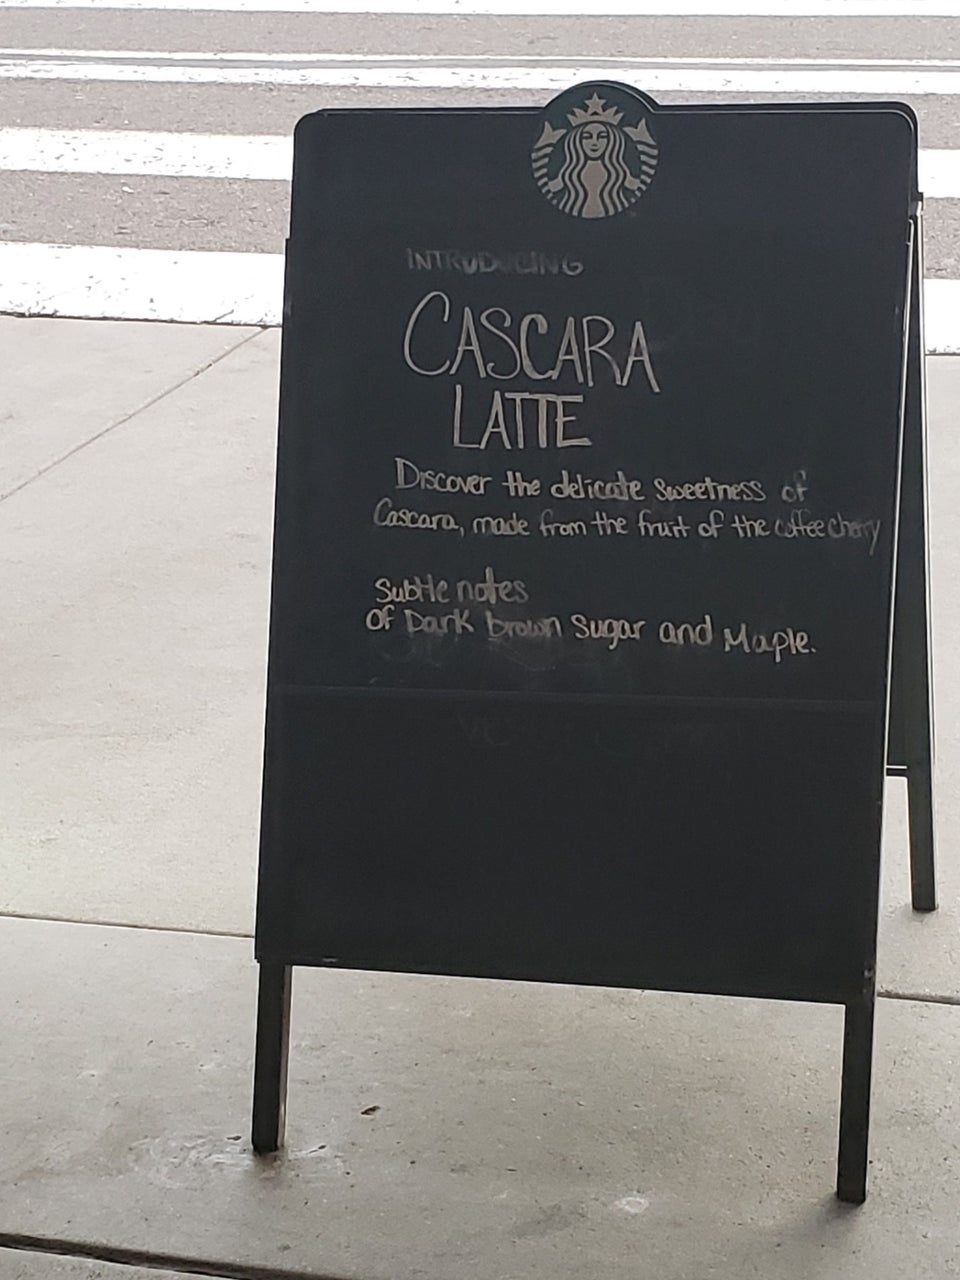 INTRODUCING
CASCARA
LATTE
Discover the delicate sweetness of
Cascara, made from the fruit of the coffee cherry
Subtle notes
of Dark brown Sugar and Maple.